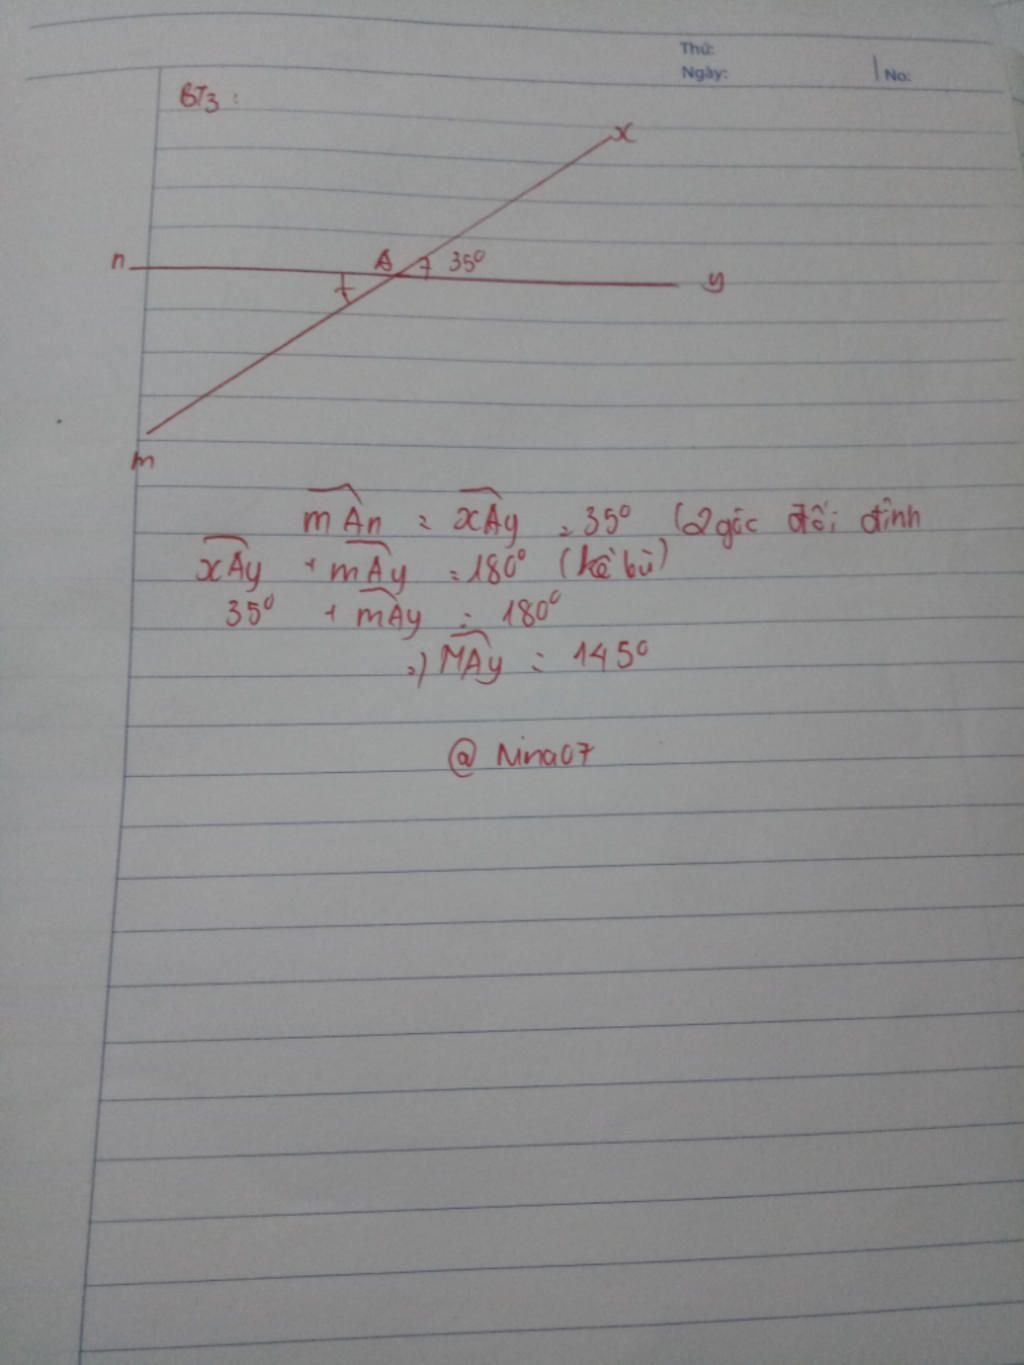 Thứ:
Ngày: No:
BT3:
x
n A 35° y
m
mAn = xAy = 35° (2 góc đối đỉnh
xAy + mAy = 180° (kề bù)
35° + mAy = 180°
=) MAy = 145°
@ Nina07